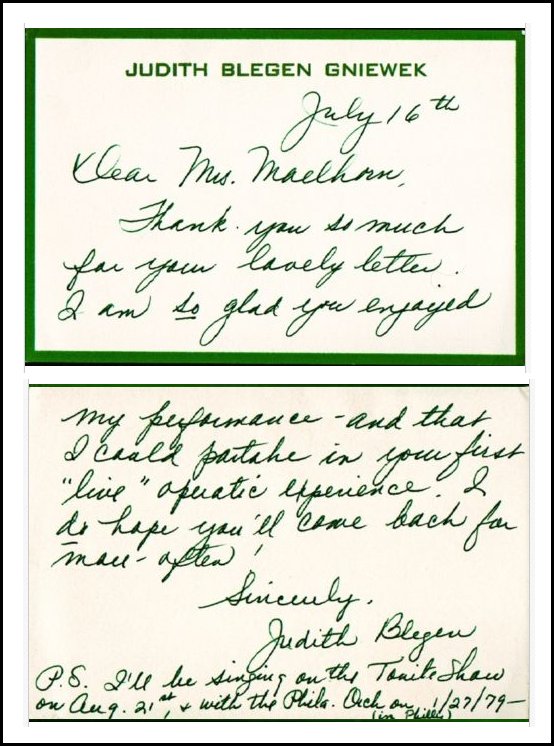 JUDITH BLEGEN GNIEWEK
July 16th
Dear Mrs. Maelhorn,
Thank you so much
for your lovely letter.
I am so glad you enjoyed
my performance - and that
I could partake in your first
"live" operatic experience. I
do hope you'll come back for
more - often!
Sincerely,
Judith Blegen
P.S. I'll be singing on the Tonite Show
on Aug. 21st, & with the Phila. Orch on 1/27/79-
(in Philly)